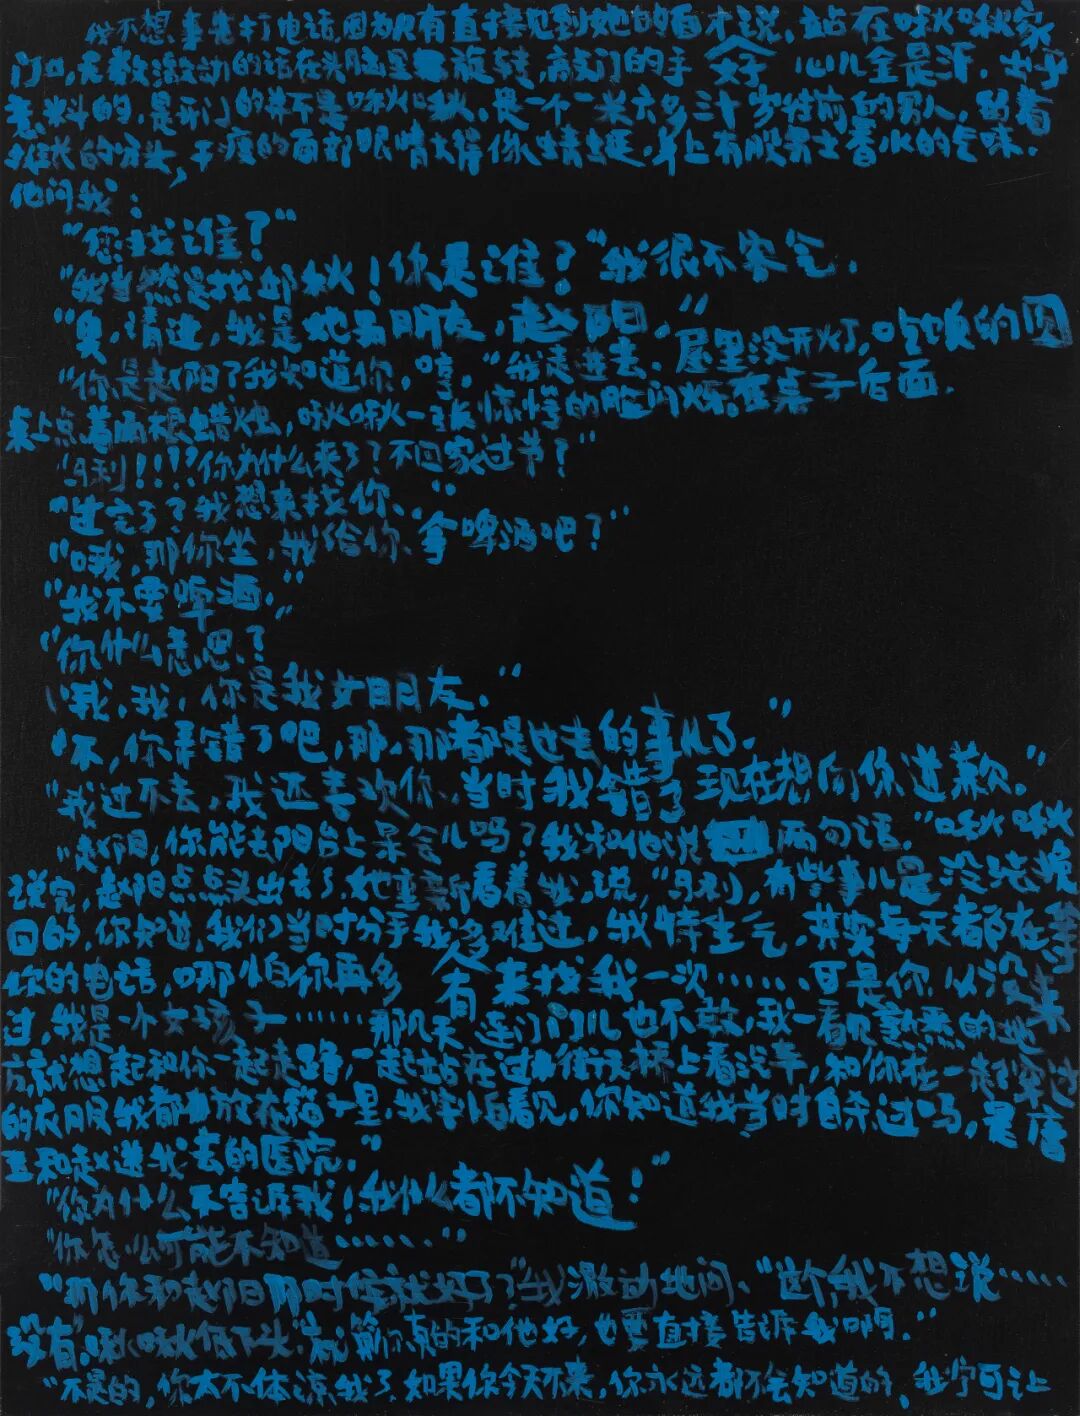 我不想事先打电话,因为只有直接见到她的面才说,站在啾啾家
门口,无数激动的话在头脑里旋转,敲门的手 心儿全是汗,出乎
意料的,是开门的并不是啾啾,是一个一米六多,三十岁左右的男人,留着
的分头,干瘦的面部眼睛大得像蜻蜓,身上有股男士香水的气味.
他问我:
"您找谁?"
"我当然是找邹啾!你是谁?"我很不客气.
"奥,请进,我是她男朋友,赵阳."
"你是赵阳?我知道你,哼."我走进去.屋里没开灯,吃饭的圆
桌上点着两根蜡烛,啾啾一张惊愕的脸闪烁在桌子后面.
"马利!!??你为什么来了?不回家过节?"
"过完了?我想来找你."
"哦,那你坐,我给你、拿啤酒吧?"
"我不要啤酒."
"你什么意思?
"我,我,你是我女朋友."
"不,你弄错了吧,那,那都是过去的事儿了."
"我过不去,我还喜欢你.当时我错了现在想向你道歉."
"赵阳,你能去阳台上呆会儿吗?我和他说两句话."啾啾
说完,赵阳点点头出去了.她重新看着我,说"马利,有些事儿是没法挽
回的,你知道,我们当时分手我多难过,我特生气,其实每天都在等
你的电话,哪怕你再多有来找我一次……可是你从没来
过,我是一个女孩子……那几天连门儿也不敢,我一看见熟悉的地
方就想起和你一起走路,一起站在过街天桥上看汽车,和你在一起穿过
的衣服我都放在箱子里,我害怕看见,你知道我当时自杀过吗,是唐
和赵送我去的医院."
"你为什么不告诉我!我什么都不知道!"
"你怎么可能不知道……"
"那你和赵阳那时候就好了?"我激动地问."这个我不想说……
没有"啾啾低下头."就算你真的和他好,也要直接告诉我啊."
"不是的,你太不体谅我了.如果你今天不来,你永远都不会知道的,我宁可让